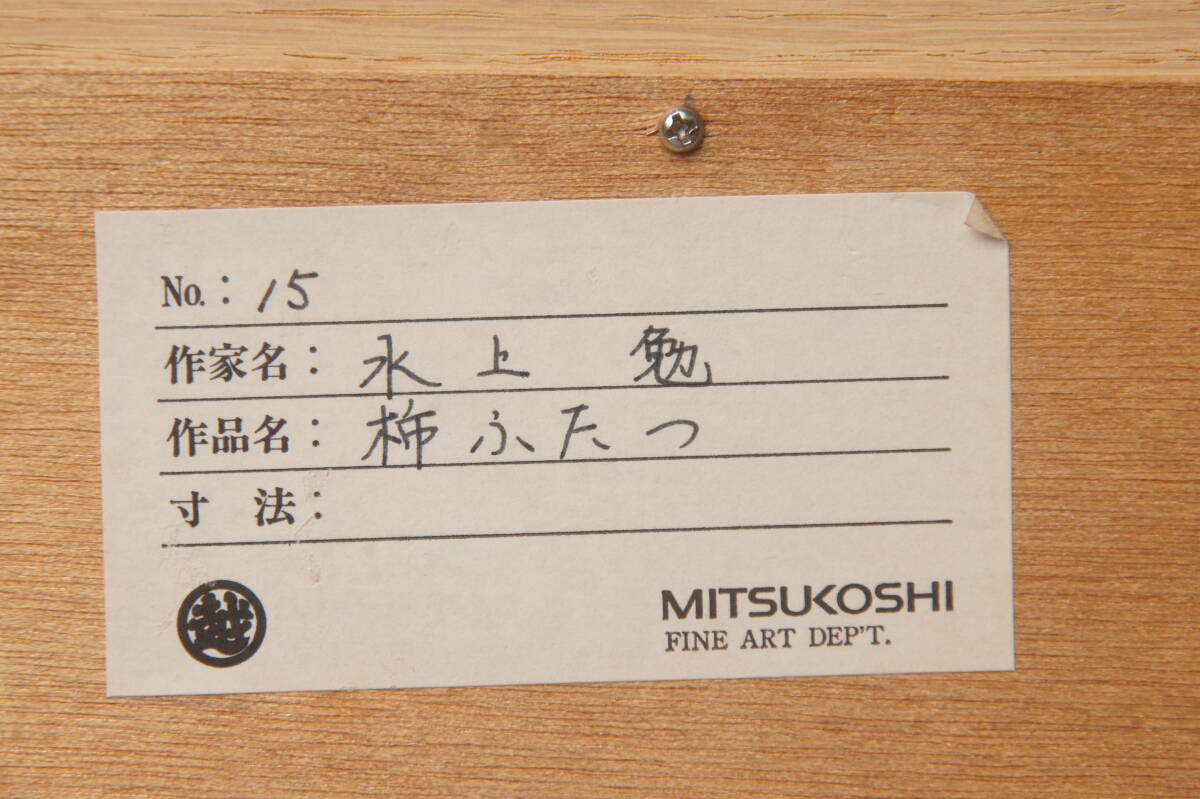 No.: 15
作家名: 水上 勉
作品名: 柿ふたつ
寸 法:
越
MITSUKOSHI
FINE ART DEP'T.